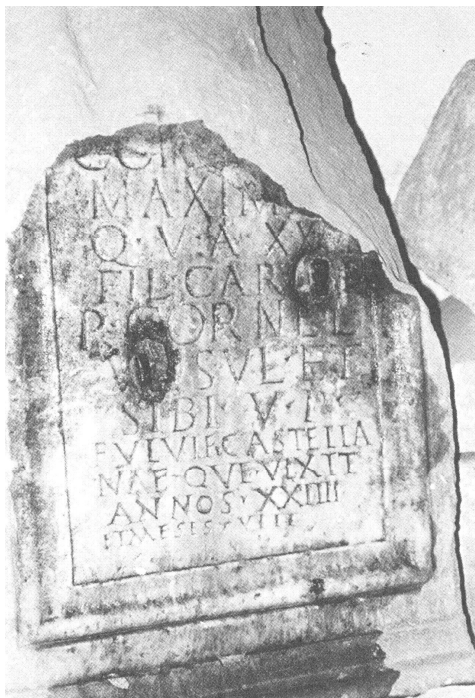 MAXIM
Q · V · A XX
FIL · CAR
P · CORNEL
SVE · ET
SIBI · V · P
FVLVIE · CASTELLA
NAE · QVE · VIXIT
ANNOS · XXIIII
ET MESES